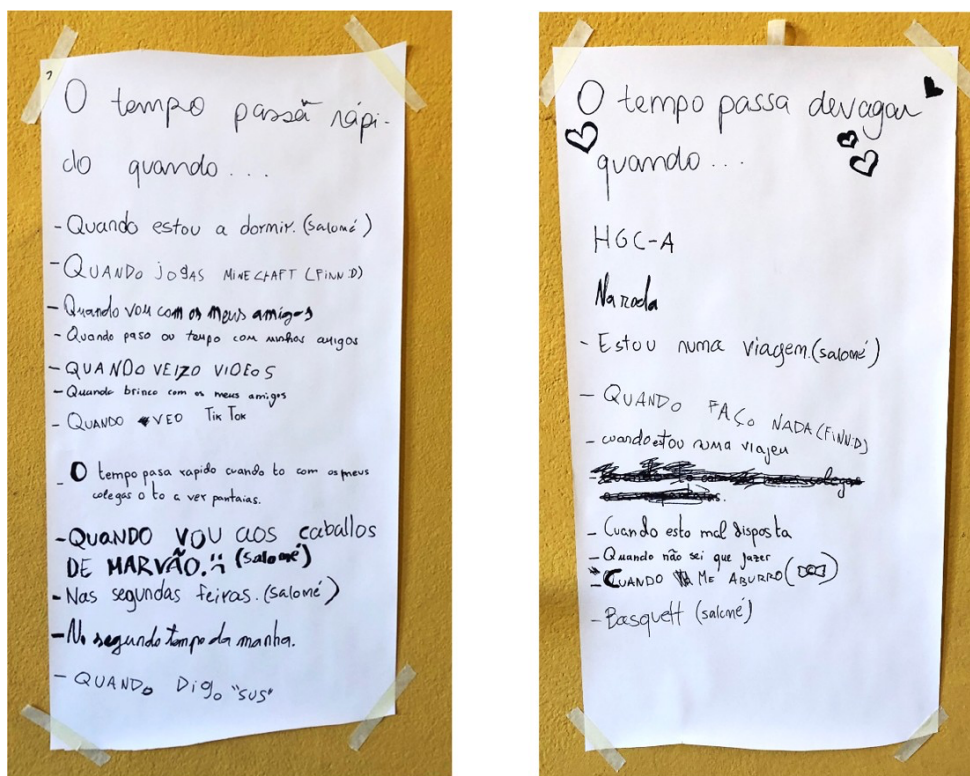 O tempo passa rápi-
do quando...
- Quando estou a dormir. (Salomé)
- QUANDO jogas MINECRAFT (FINN:D)
- Quando vou com os meus amigos
- Quando paso ou tempo com minhos amigos
- QUANDO VEIZO VIDEOS
- Quando brinco com os meus amigos
- QUANDO VEO TIK TOK
- O tempo pasa rapido cuando to com os meus
colegas o to a ver pantaias.
- QUANDO VOU aos caballos
DE MARVÃO. (Salomé)
- Nas segundas feiras. (Salomé)
- No segundo tempo da manha.
- QUANDO Digo "SUS"
O tempo passa devagar
quando...
HGC-A
Na roda
- Estou numa viagem. (salomé)
- QUANDO FAÇO NADA (FINN:D)
- cuando estou numa viajen
- Cuando esto mal disposta
- Quando não sei que fazer
- CUANDO ME ABURRO
- Basquett (salomé)